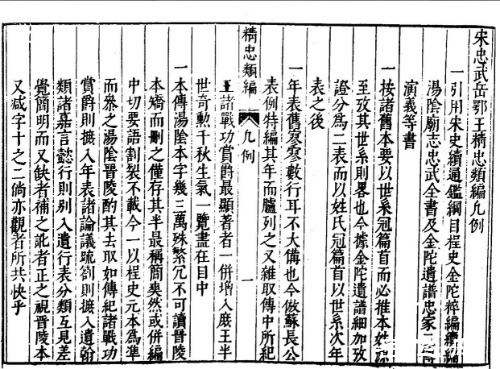 宋忠武岳鄂王精忠類編凡例
一引用宋史續通鑑綱目桯史金陀粹編續編
湯陰廟志忠武全書及金陀遺譜忠家
演義等書
一按諸舊本要以世系冠篇首而必推本姓
至攷其世系則畧也今據金陀遺譜細加攷
證分爲二表而以姓氏冠篇首以世系次年
表之後
一年表舊寥寥數行耳不大備也今倣蘇長公
表例特編其年而臚列之又雜取傳中所紀
精忠類編 凡例 一
王諸戰功賞爵最顯著者一併增入庶王半
世奇勲千秋生氣一覽盡在目中
一本傳湯陰本字幾三萬殊繁冗不可讀晉陵
本矯而刪之僅存其半最稱簡爽然或併編
中切要語割裂不載今一以桯史元本爲準
而叅之湯陰晉陵酌其去取如傳紀諸戰功
賞爵則摭入年表諸論議疏劄則摭入遺翰
類諸嘉言懿行則别入遺行表分類互見差
覺簡明而又缺者補之訛者正之視晉陵本
又减字十之二倘亦觀者所共快乎